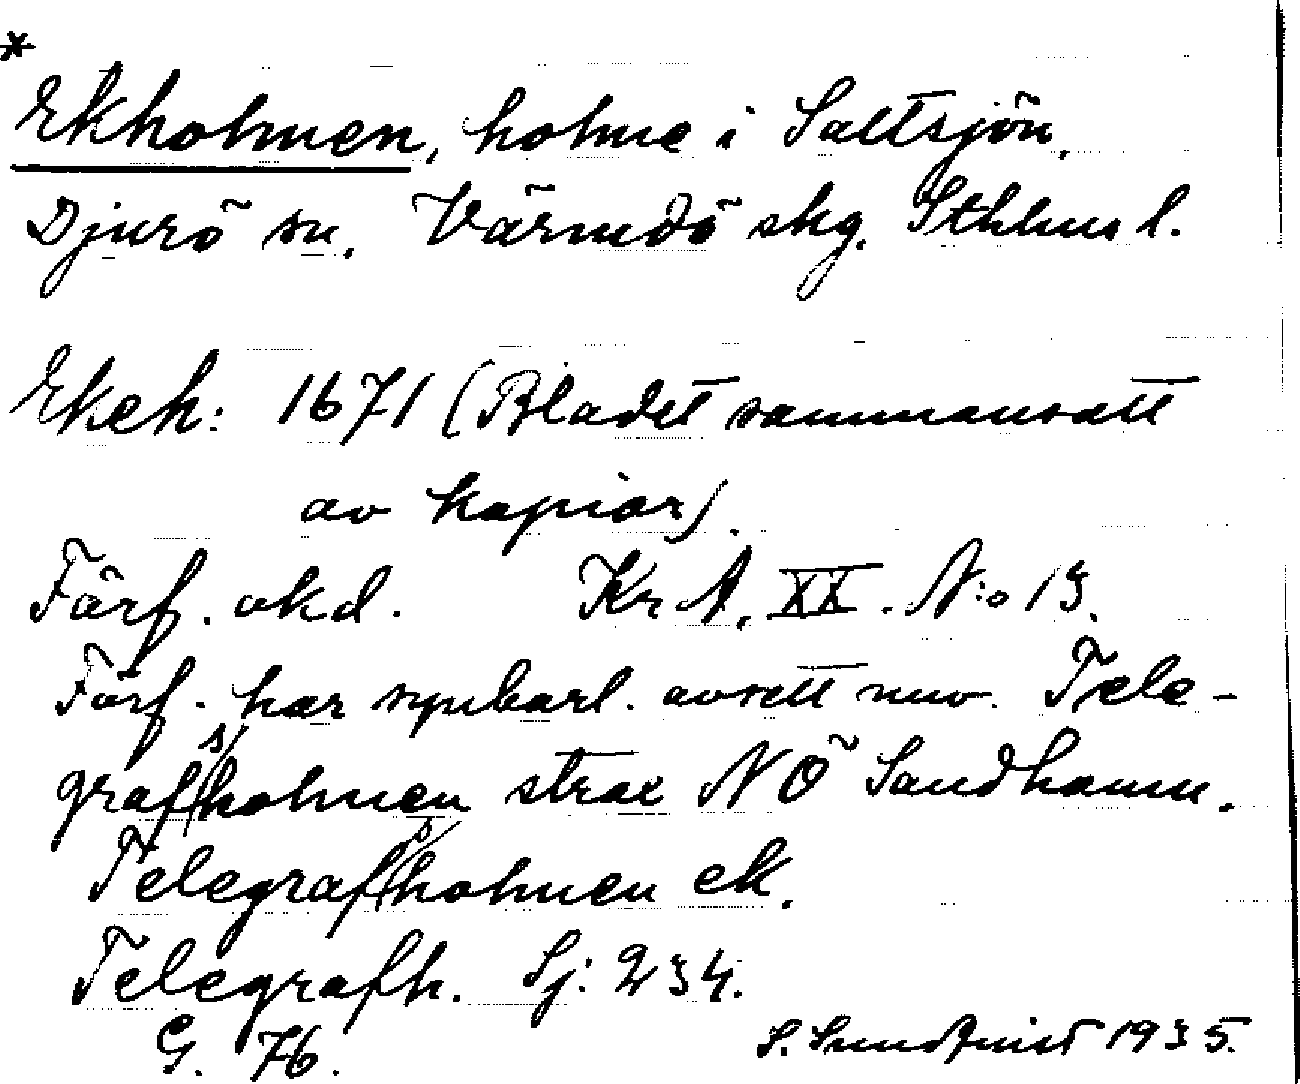 *
Ekholmen, holme i Saltsjön,
Djurö sn. Värmdö skg. Sthlms l.
Ekeh: 1671 (Bladet sammansatt
av kopior).
Förf. okd. Kr A. XX. N:o 13.
Förf. har synbarl. avsett nuv. Tele-
grafsholmen strax NÖ Sandhamn.
Telegrafsholmen ek.
Telegrafh. Sj: 234.
G. 76.
S. Sundqvist 1935.